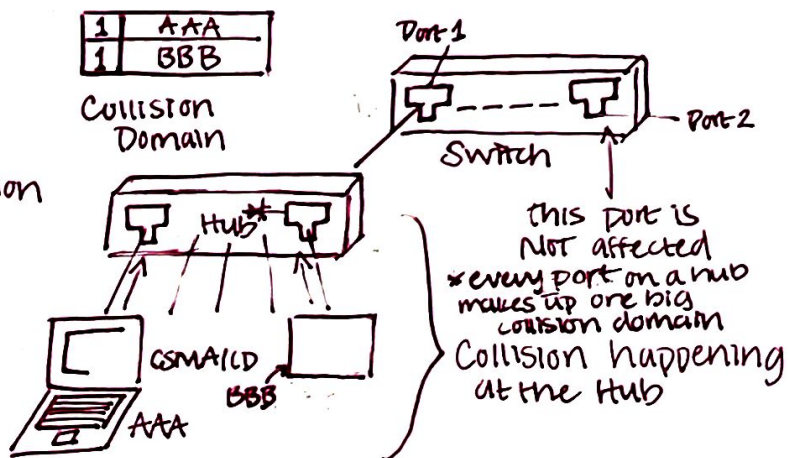 1 AAA
1 BBB
Collision
Domain
Port 1
Port 2
Switch
on
Hub
this port is
NOT affected
*every port on a hub
makes up one big
collision domain
Collision happening
at the Hub
CSMA/CD
BBB
AAA